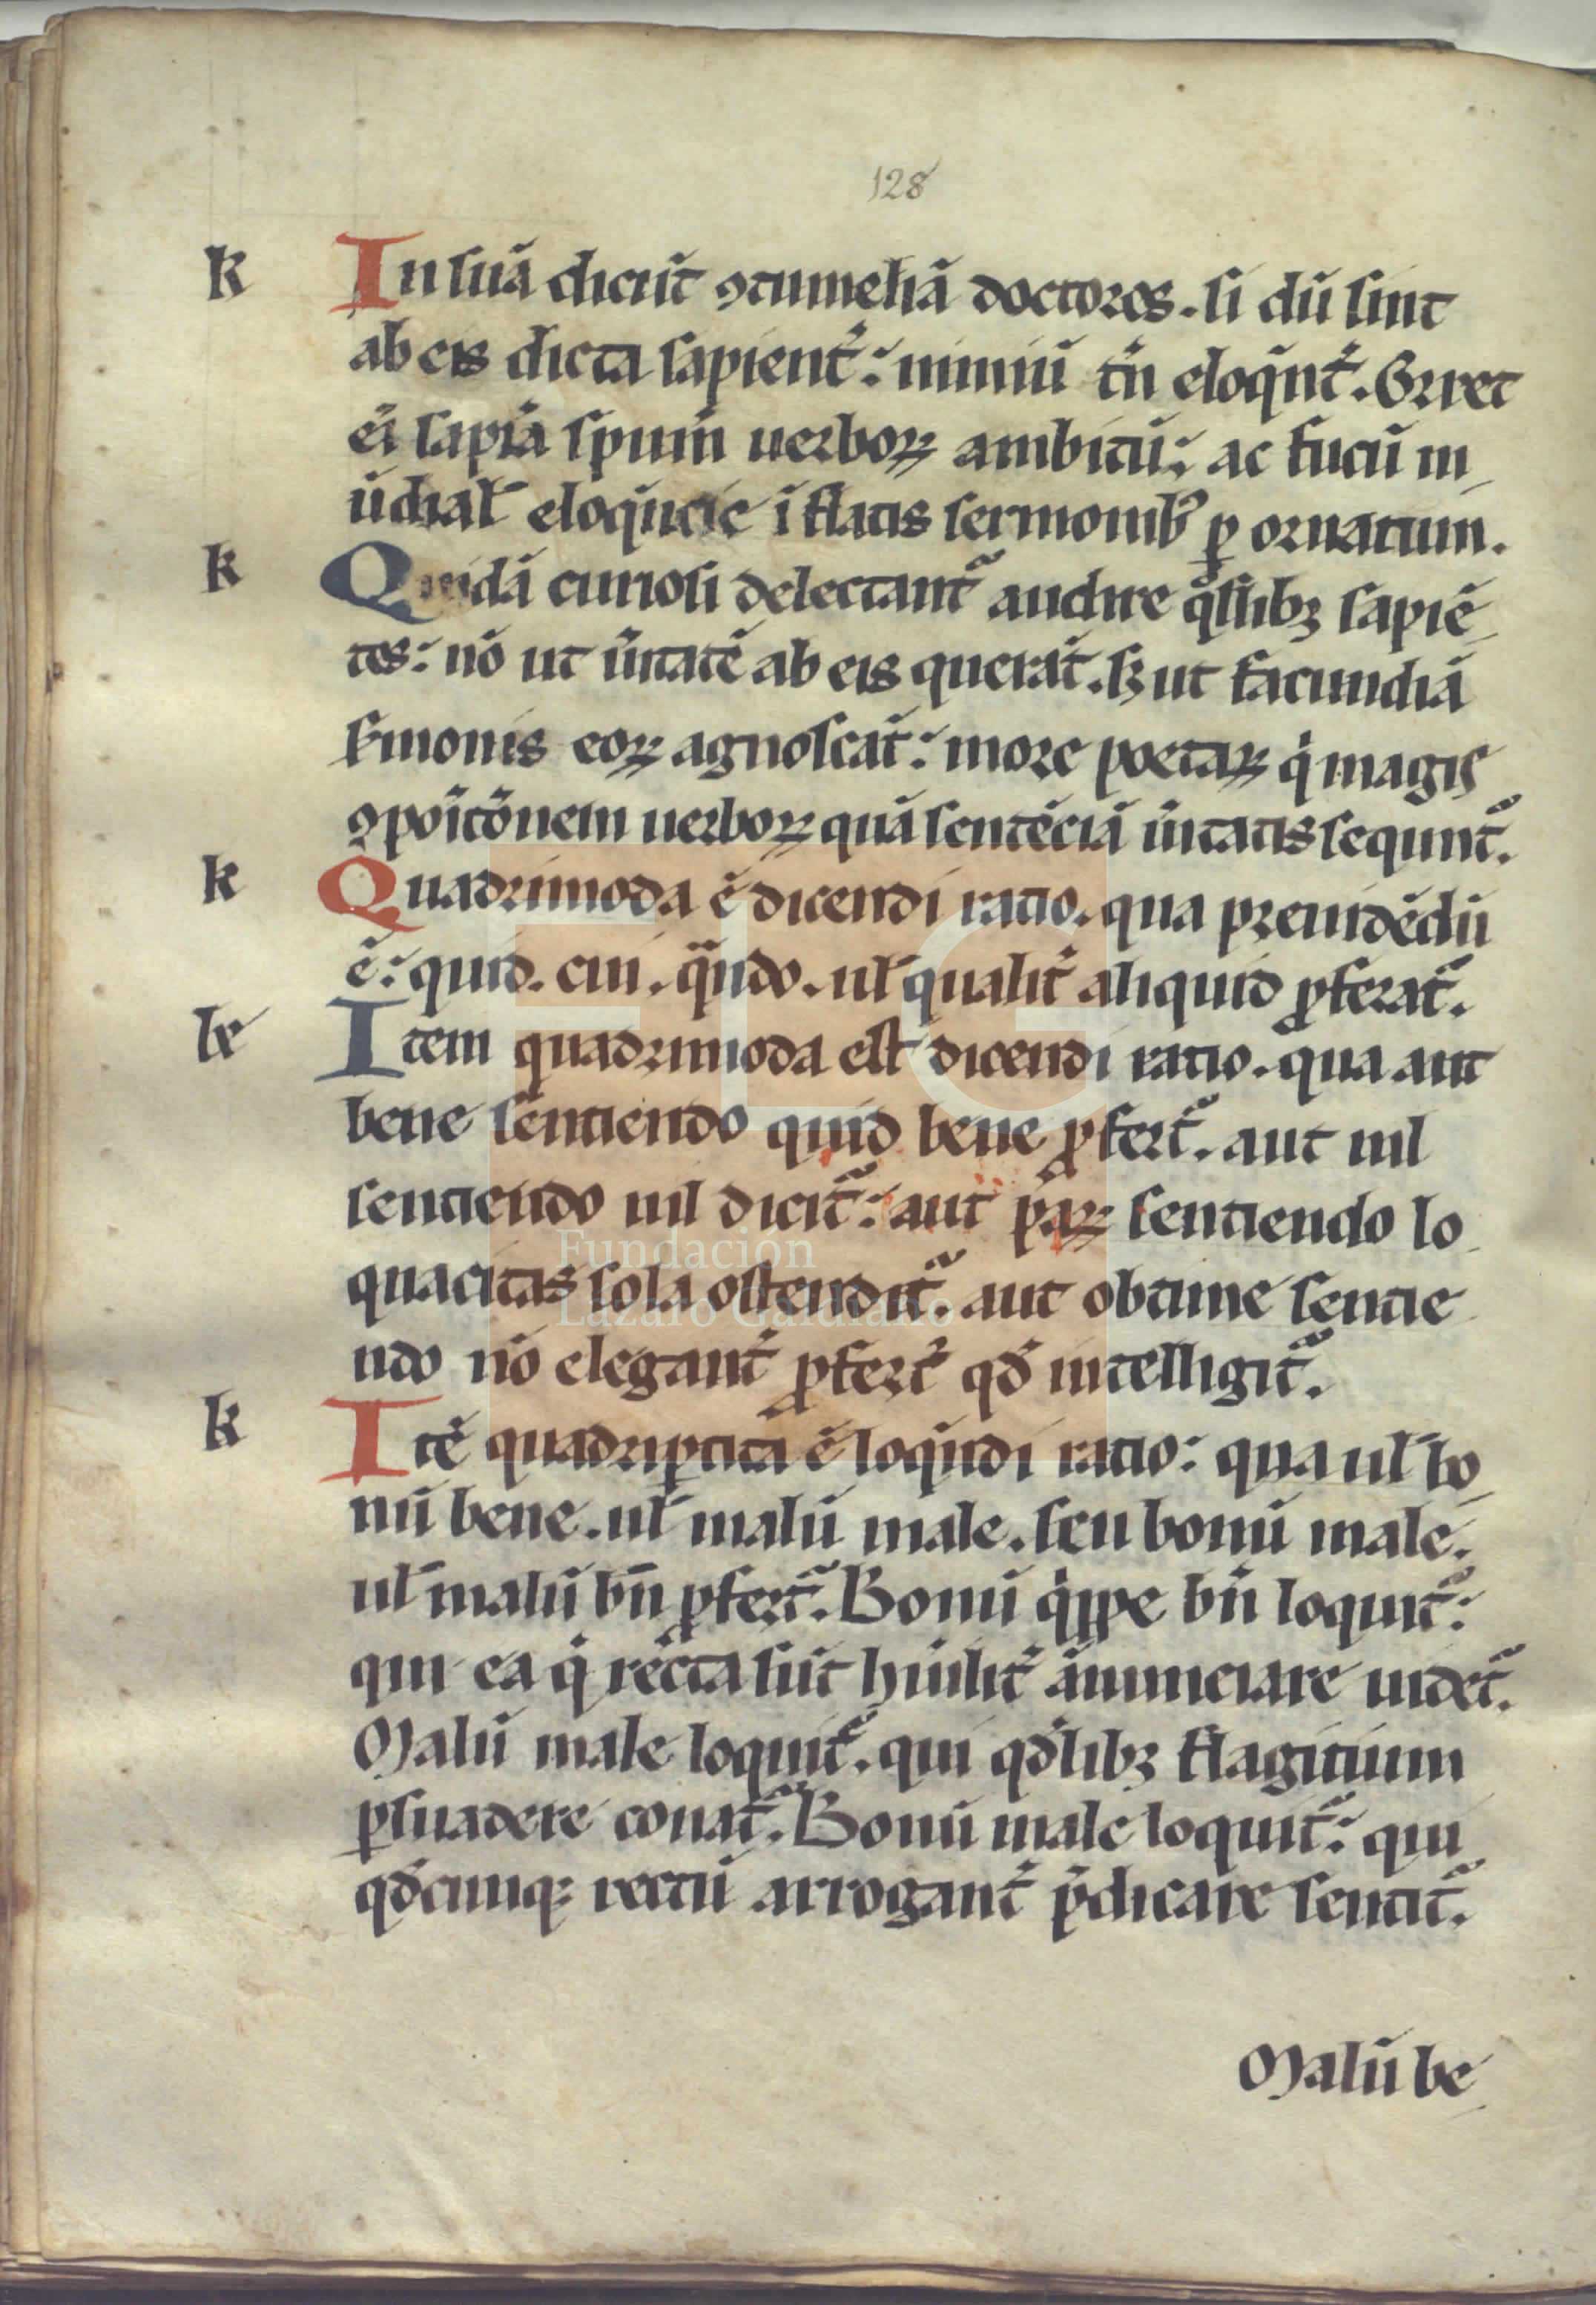 128
k In suā dicūt ꝯtumeliā doctores. si dū sint
ab eis dicta sapient̉: nimiū tn̄ eloq̄nt̉. Orret
ei̅ sapīa spum̄ uerboꝝ ambitū: ac fucū m
ūdial̄ eloq̄ncie īflatis sermonib᷒ ꝑ ornatum.
k Quidā curiosi delectant᷑ audire q̊slibꝫ sapiē
tes: nō ut ūitatē ab eis querāt. sꝫ ut facundiā
s̉monis eoꝝ agnoscāt: more poetaꝝ qͥ magis
ꝯpoītōnem uerboꝝ quā sentēciā ūitatis sequnt᷑.
k Quadrimoda ē dicendi ratio. qua preuidēdū
ē: quid. cui. qᷓndo. ul̄ qualit̉ aliquid ꝓferat᷑.
k Item quadrimoda est dicendi ratio. qua aut
bene sentiendo quid bene ꝓfert᷑. aut nil
sentiendo nil dicit᷑: aut paꝝ sentiendo lo
quacitas sola ostendit᷑. aut obtime sentie
ndo nō elegant̉ ꝓfert᷑ qđ intelligit᷑.
k Itē quadriꝑtita ē loq̄ndi ratio: qua ul̄ bo
nū bene. ul̄ malū male. seu bonū male.
ul̄ malū bn̄ ꝓfert᷑. Bonū qͥppe bn̄ loquit᷑:
qui ea q̄ recta sūt hūilit̉ ānunciare uidet᷑.
Malū male loquit᷑. qui qđlibꝫ flagitium
ꝑsuadere conat᷑. Bonū male loquit᷑: qui
qđcunqꝫ rectū arrogant̉ p̄dicare sentit᷑.
Malū be
Fundación
Lázaro Galdiano
FLG